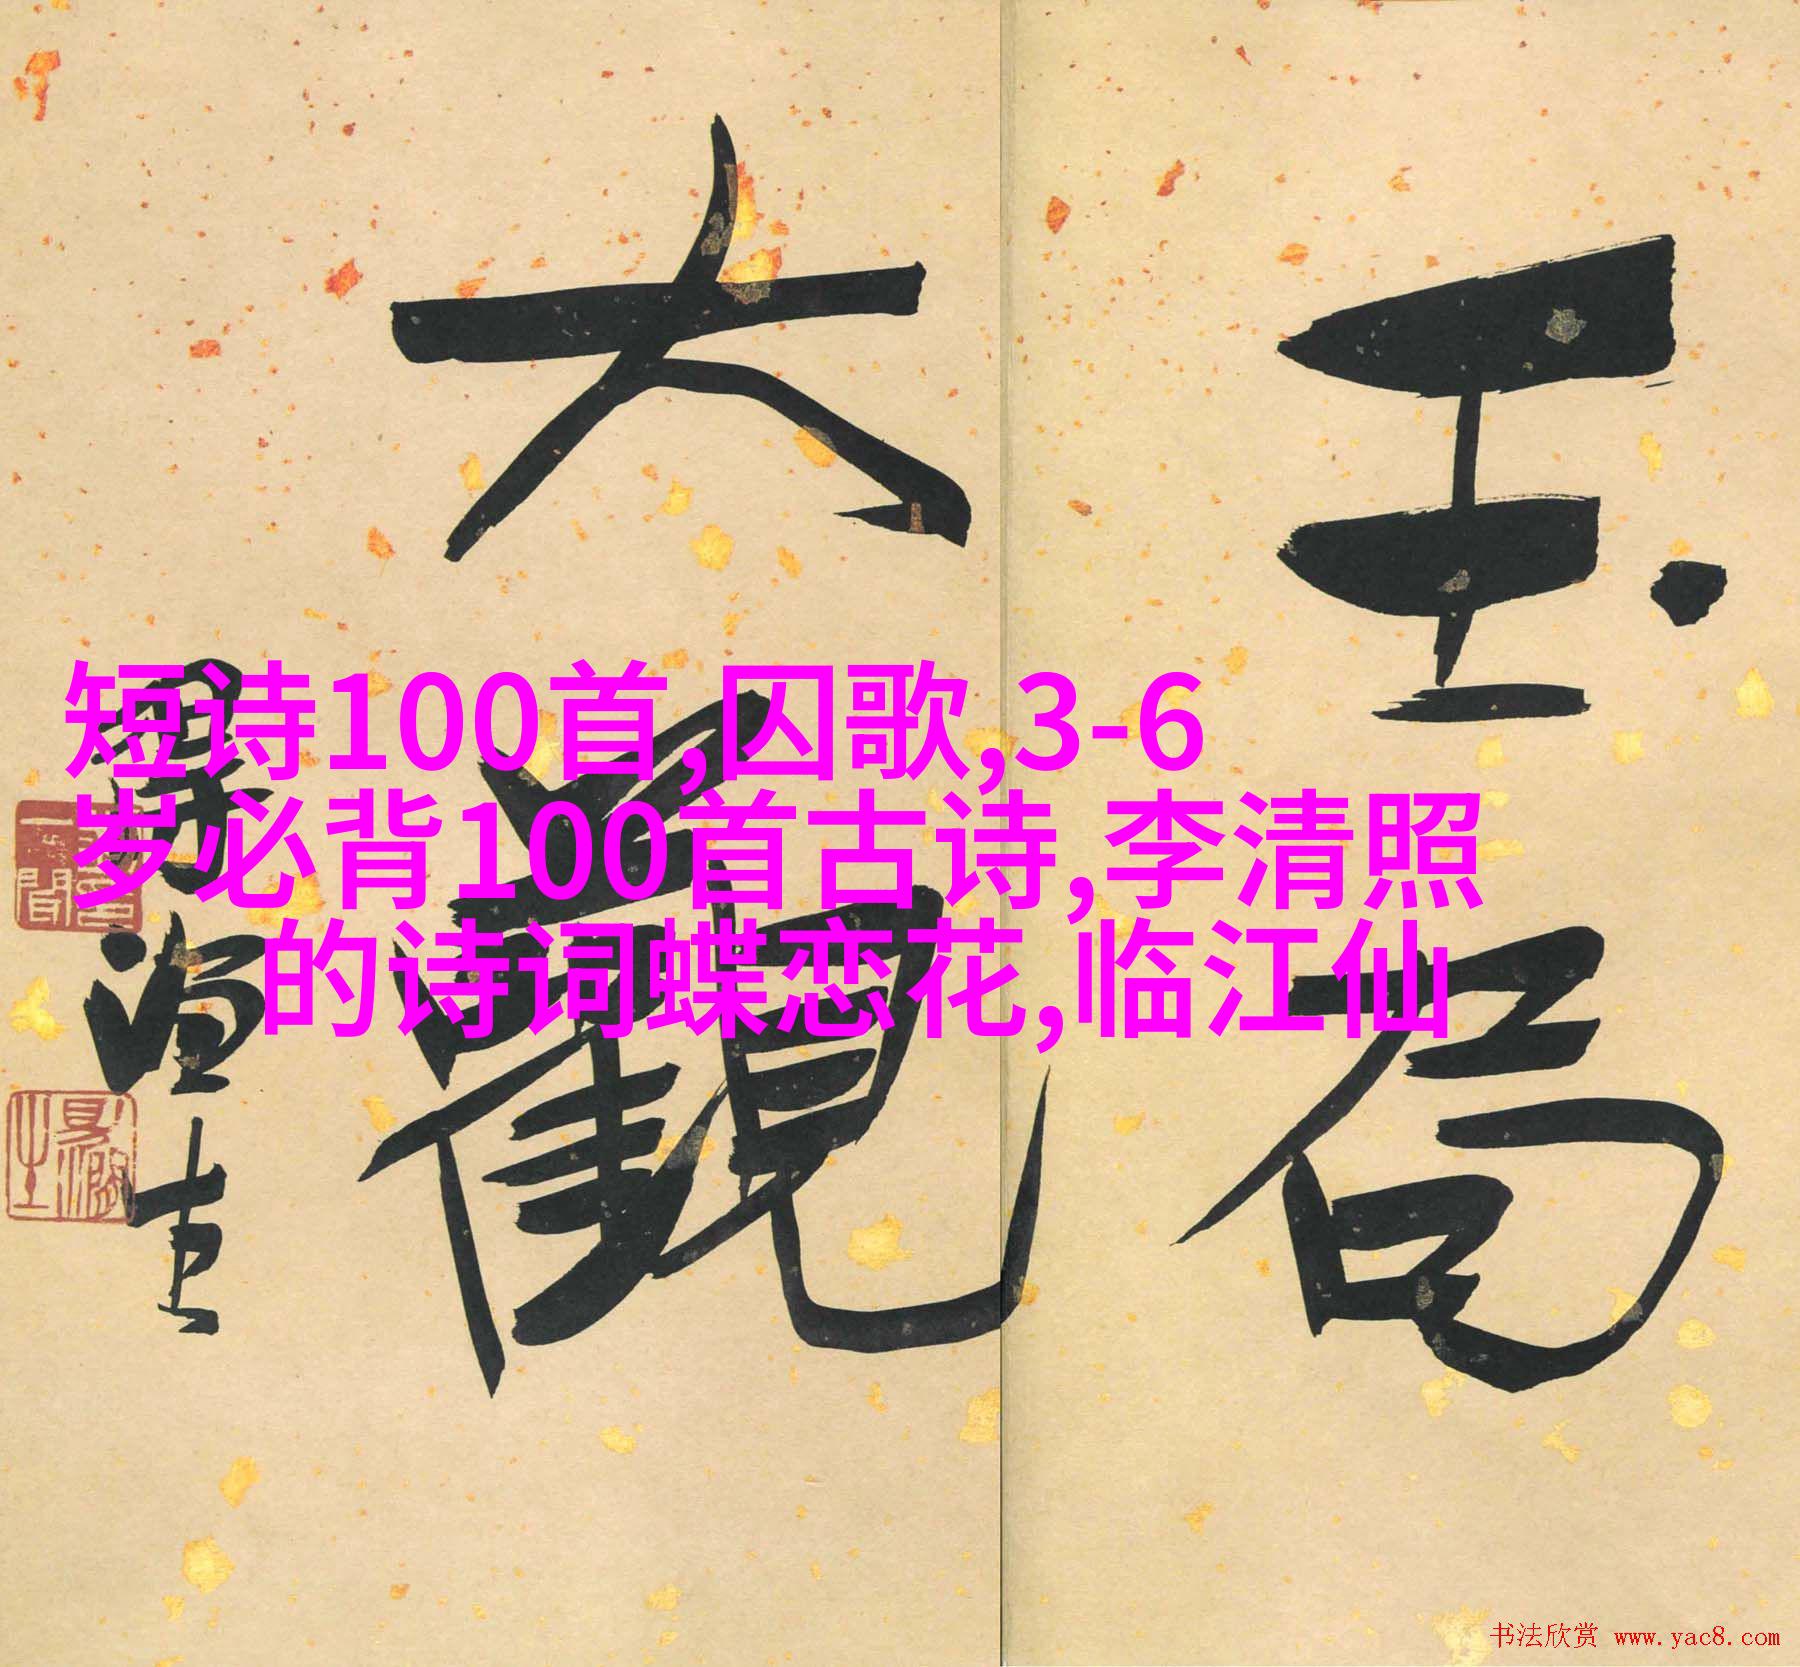 玉局
大觀
短诗100首,囚歌,3-6
岁必背100首古诗,李清照
的诗词蝶恋花,临江仙
书法欣赏 www.yac8.com